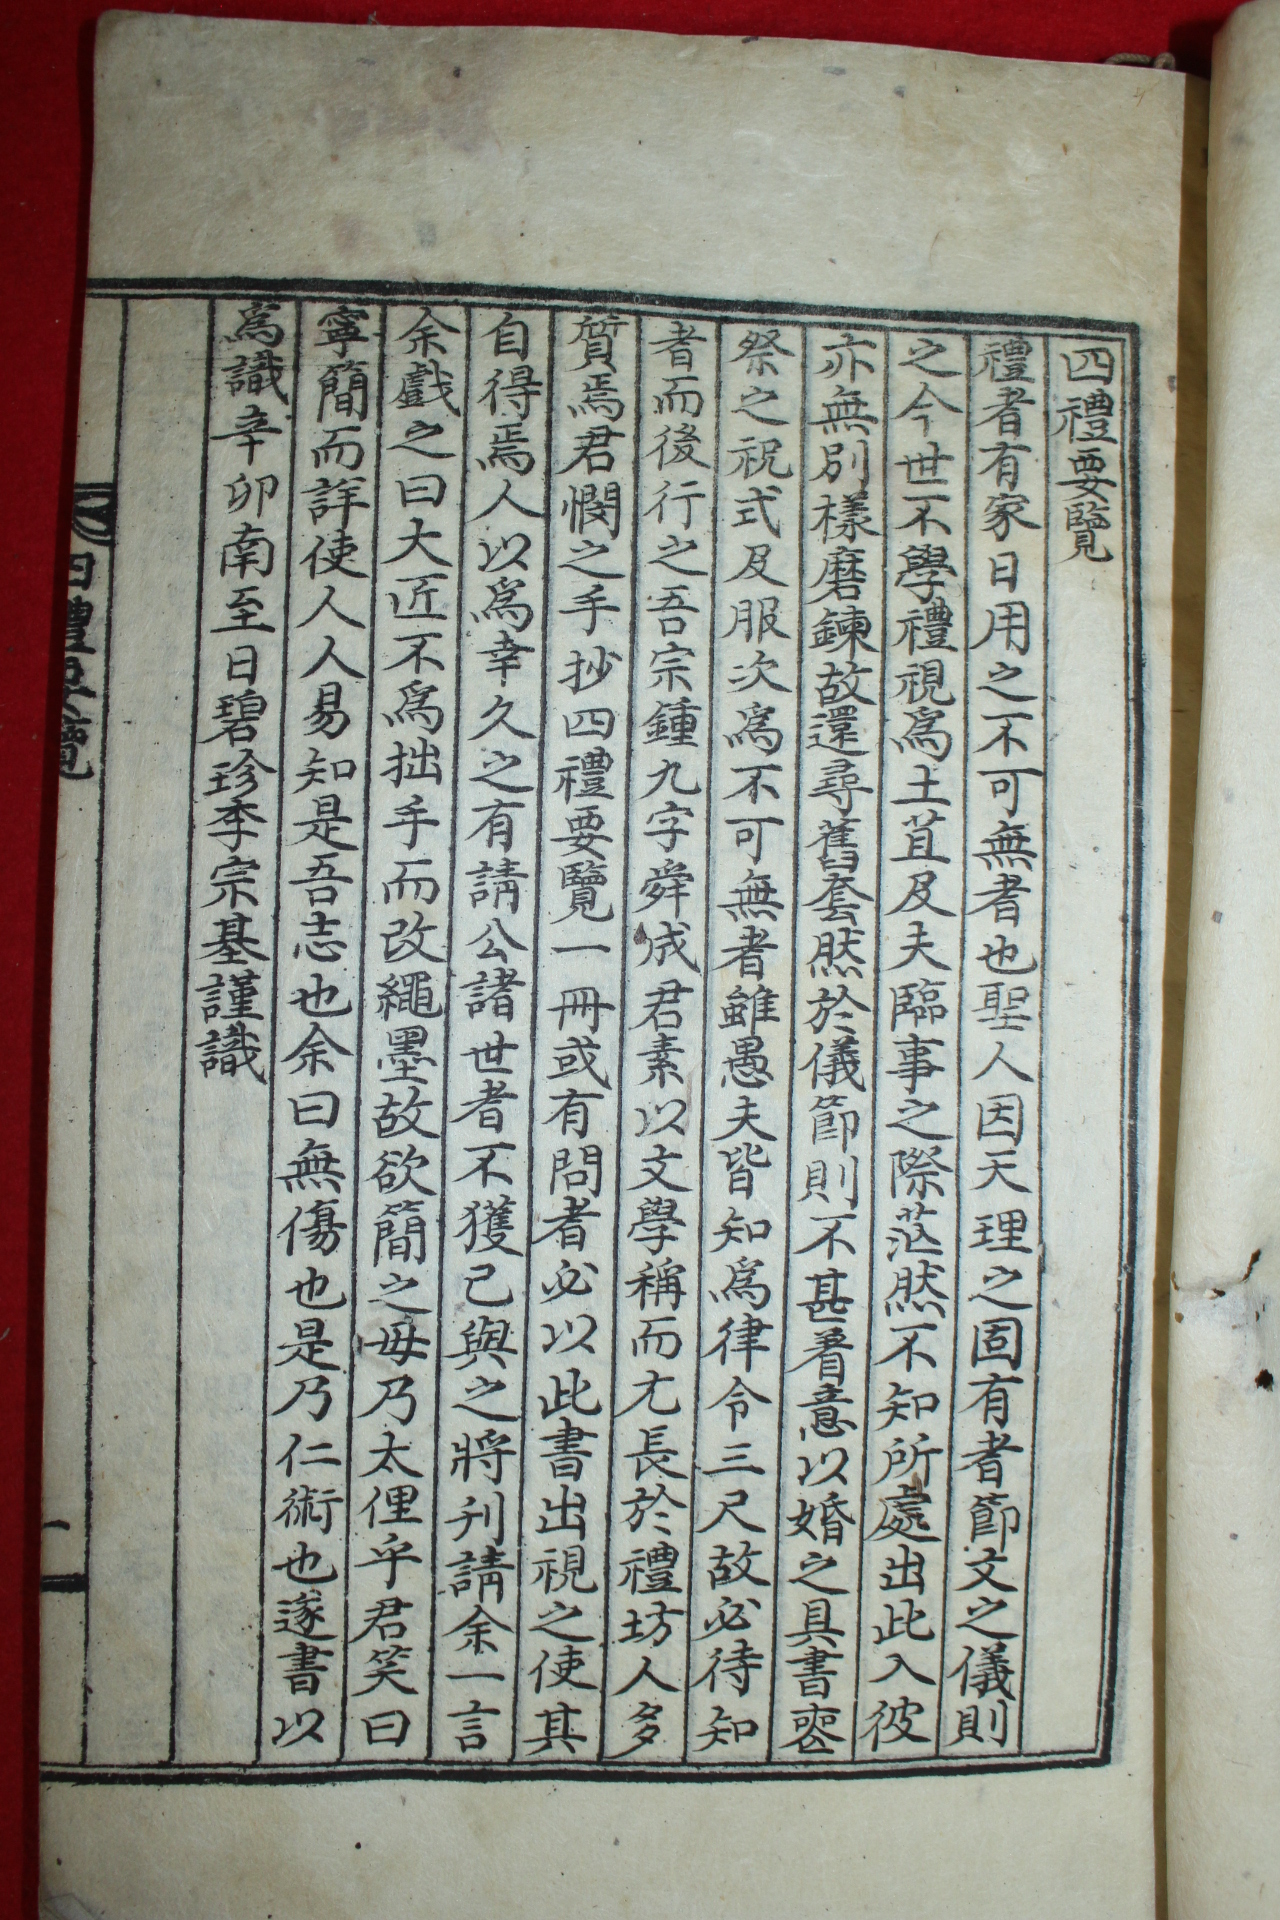 四禮要覽
禮者有家日用之不可無者也聖人因天理之固有者節文之儀則
之今世不學禮視爲土苴及夫臨事之際茫然不知所處出此入彼
亦無別樣磨鍊故還尋舊套然於儀節則不甚着意以婚之具書喪
祭之祝式及服次爲不可無者雖愚夫皆知爲律令三尺故必待知
者而後行之吾宗鍾九字舜成君素以文學稱而尤長於禮坊人多
質焉君憫之手抄四禮要覽一冊或有問者必以此書出視之使其
自得焉人以爲幸久之有請公諸世者不獲已與之將刋請余一言
余戲之曰大近不爲拙手而改繩墨故欲簡之毋乃太俚乎君笑曰
寧簡而詳使人人易知是吾志也余曰無傷也是乃仁術也遂書以
爲識辛卯南至日碧珍李宗基謹識
四禮要覽
一